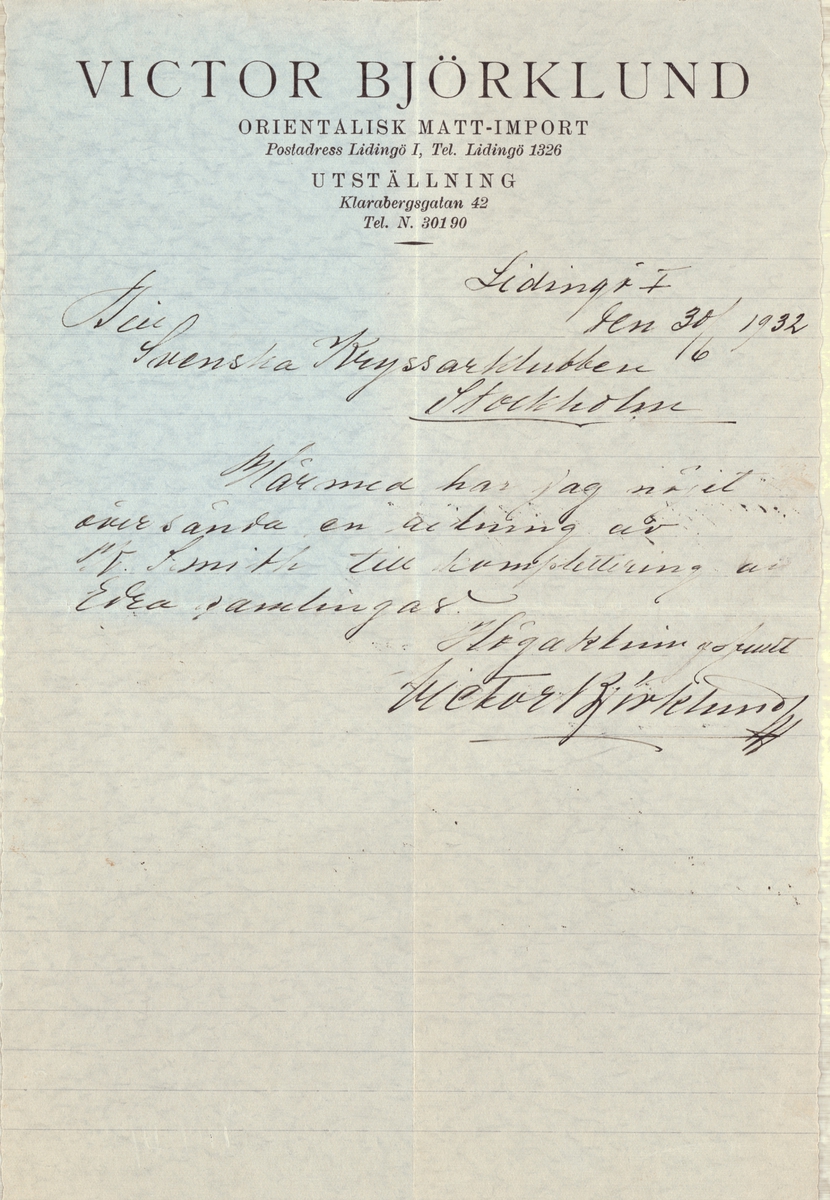 VICTOR BJÖRKLUND
ORIENTALISK MATT-IMPORT
Postadress Lidingö I, Tel. Lidingö 1326
UTSTÄLLNING
Klarabergsgatan 42
Tel. N. 30190
Lidingö I
den 30/6 1932
Till
Svenska Kryssarklubben
Stockholm
Härmed har jag nöjet
översända en ritning av
Smith till komplettering av
Edra samlingar.
Högaktningsfullt
Victor Björklund